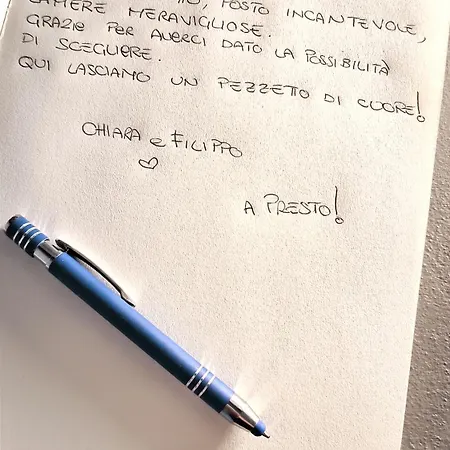 POSTO INCANTEVOLE,
CAMERE MERAVIGLIOSE.
GRAZIE PER AVERCI DATO LA POSSIBILITÀ
DI SCEGLIERE.
QUI LASCIAMO UN PEZZETTO DI CUORE!
CHIARA e FILIPPO
A PRESTO!